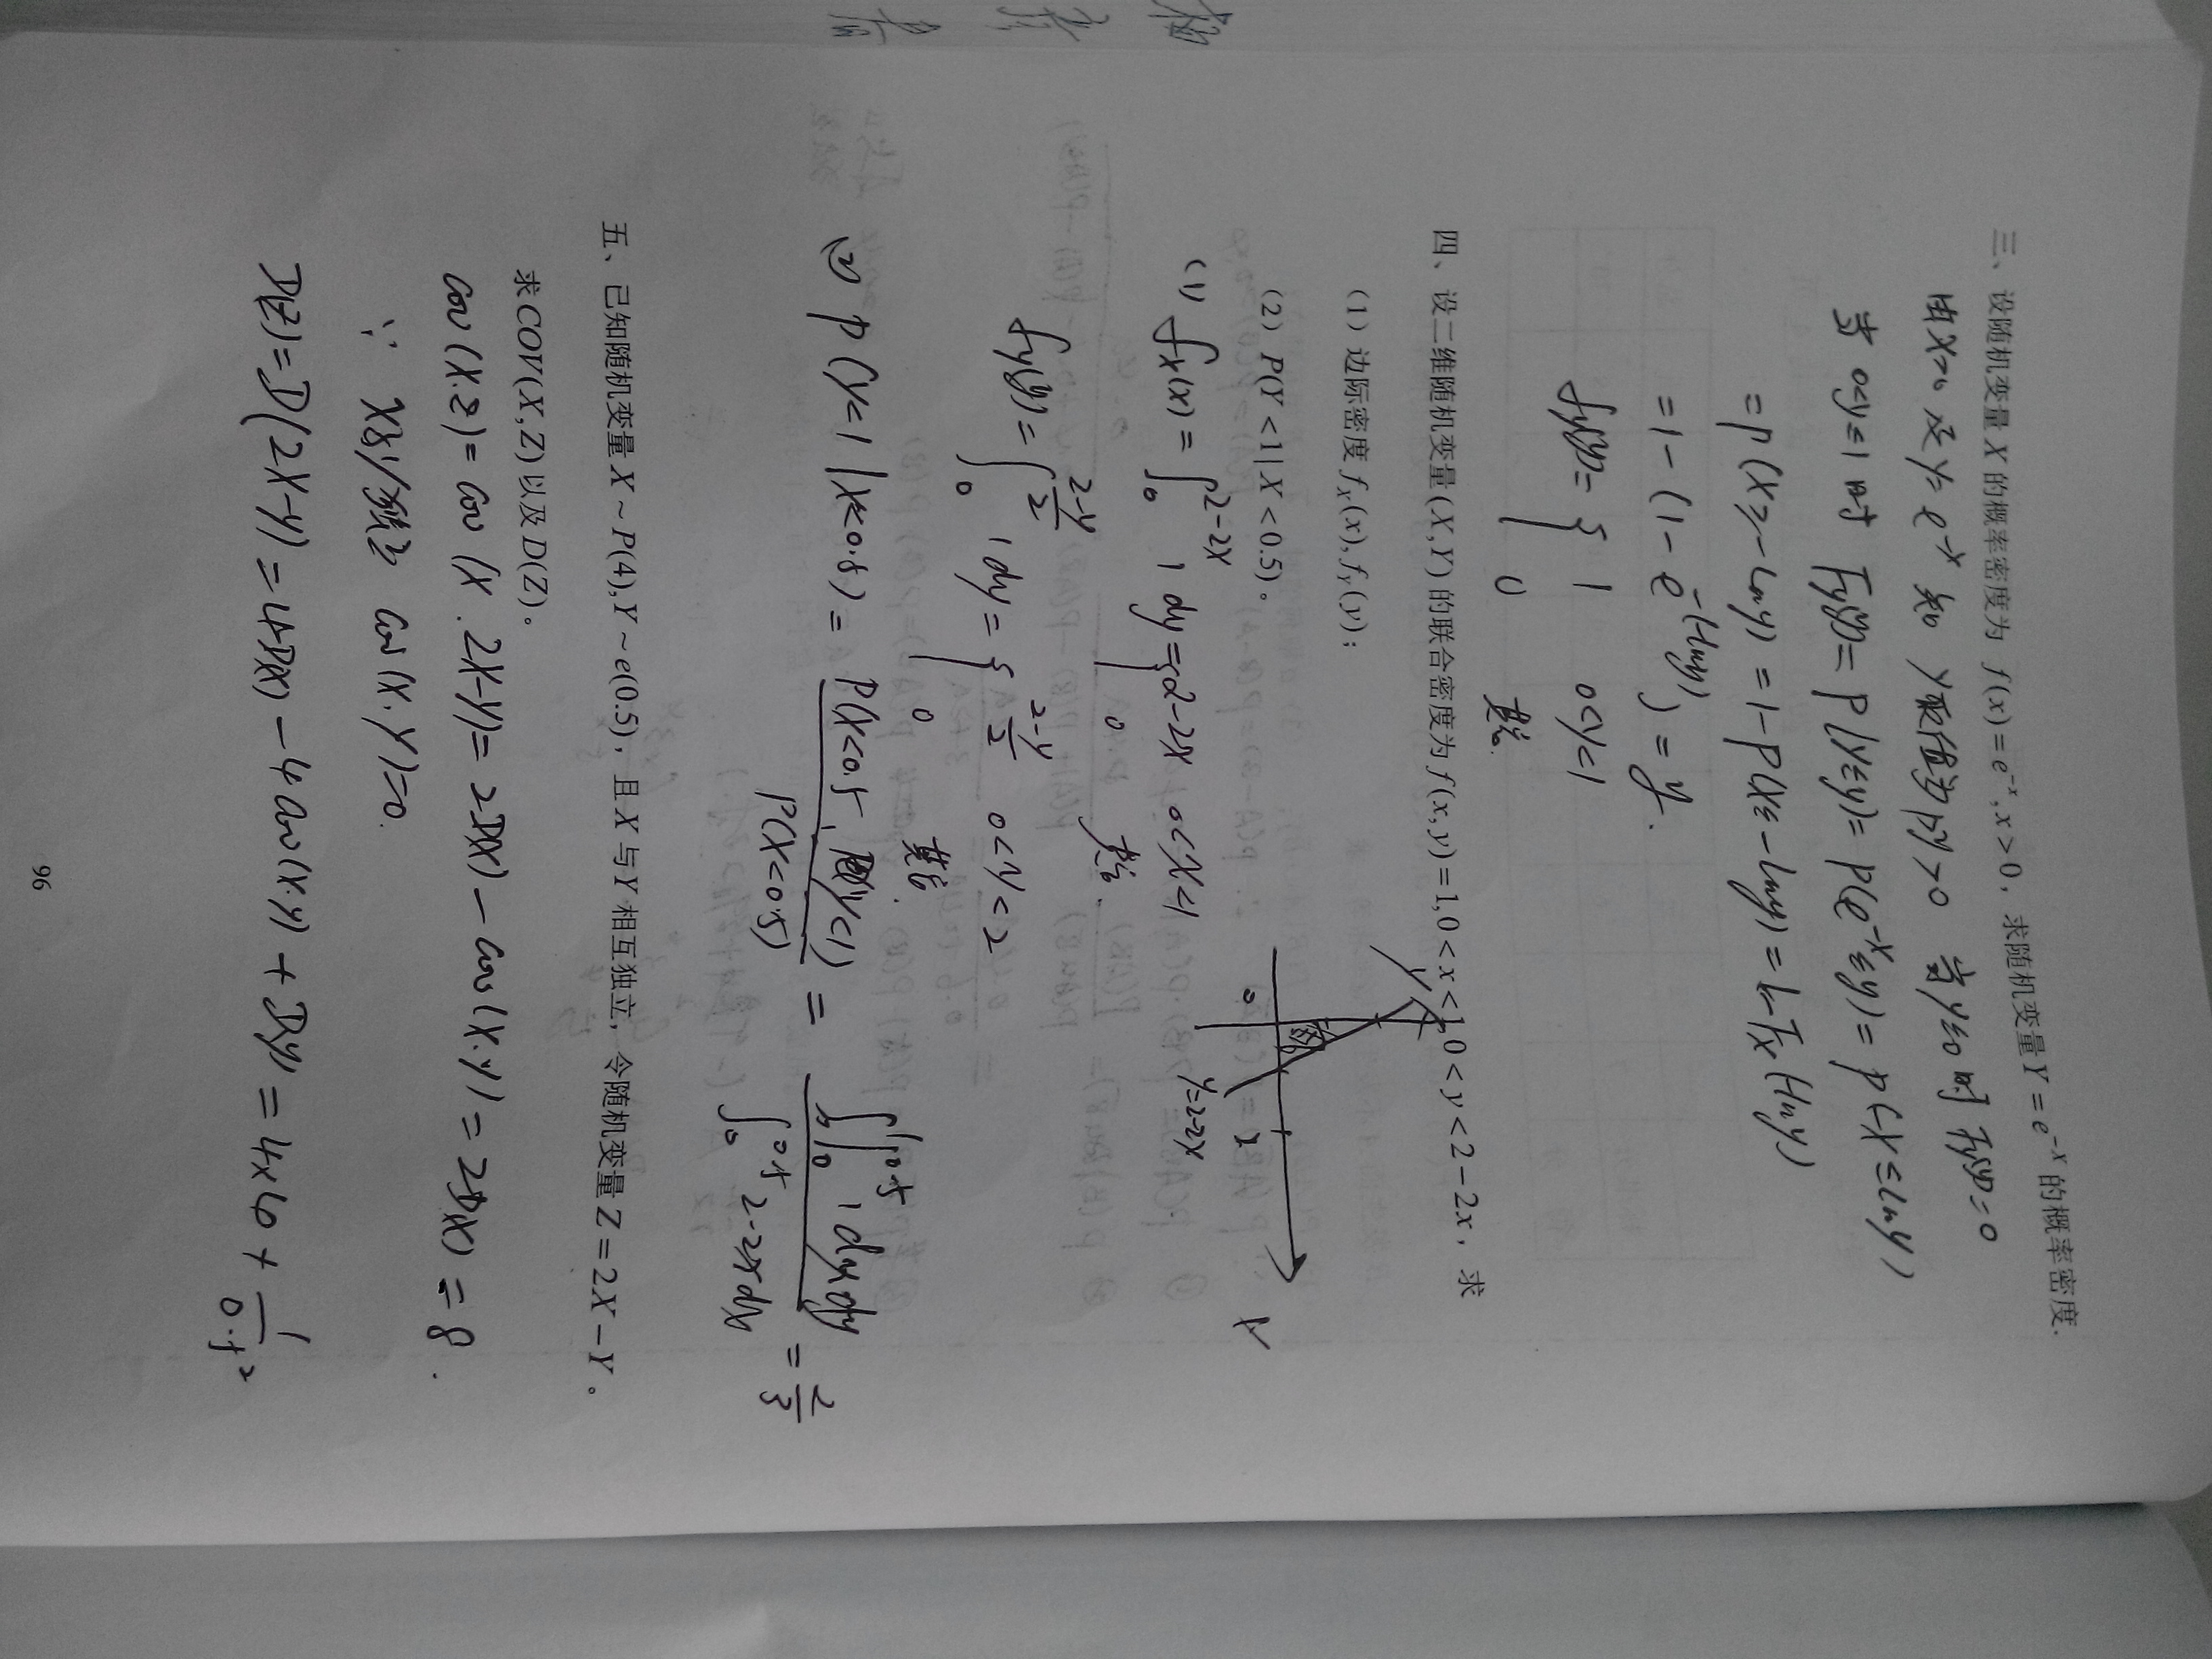 三、设随机变量 X 的概率密度为 f(x)=e^{-x},x>0，求随机变量 Y=e^{-X} 的概率密度.
由X>0 及 Y=e^{-X} 知 Y取值为 Y>0 当y≤0时 F_Y(y)=0
当 0<y≤1 时 F_Y(y)=P(Y≤y)=P(e^{-X}≤y)=P(-X≤lny)
=P(X≥-lny)=1-P(X≤-lny)=1-F_X(-lny)
=1-(1-e^{-(-lny)})=y.
f_Y(y)={ 1 0<y<1
0 其他.
四、设二维随机变量(X,Y)的联合密度为 f(x,y)=1,0<x<1,0<y<2-2x，求
（1）边际密度 f_X(x),f_Y(y)；
（2）P(Y<1|X<0.5)。
(1) f_X(x)=∫_0^{2-2x} 1 dy={ 2-2x 0<x<1
0 其他.
f_Y(y)=∫_0^{\frac{2-y}{2}} 1 dy={ \frac{2-y}{2} 0<y<2
0 其他.
y 0 1 x
y=2-2x
(2) P(Y<1|X<0.5)=\frac{P(X<0.5,Y<1)}{P(X<0.5)}=\frac{∫_0^1∫_0^{0.5} 1 dxdy}{∫_0^{0.5} 2-2x dy}=\frac{2}{3}
五、已知随机变量 X~P(4),Y~e(0.5)，且 X 与 Y 相互独立，令随机变量 Z=2X-Y。
求 COV(X,Z) 以及 D(Z)。
cov(X.Z)=cov(X.2X-Y)=2D(X)-cov(X.Y)=2D(X)=8.
∵ X与Y独立 cov(X.Y)=0.
D(Z)=D(2X-Y)=4D(X)-4cov(X.Y)+DY=4×6+\frac{1}{0.5^2}
96